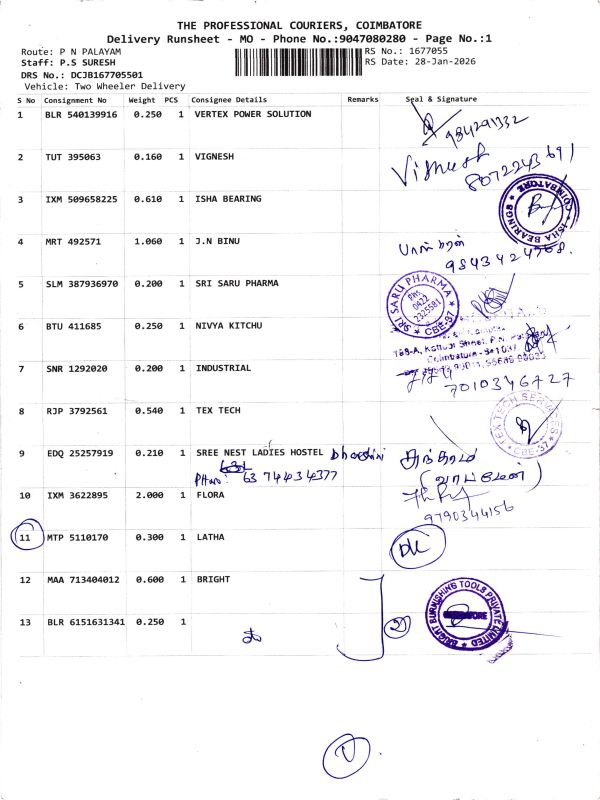 THE PROFESSIONAL COURIERS, COIMBATORE
Delivery Runsheet - MO - Phone No.:9047080280 - Page No.:1
Route: P N PALAYAM
RS No.: 1677055
Staff: P.S SURESH
RS Date: 28-Jan-2026
DRS No.: DCJB167705501
Vehicle: Two Wheeler Delivery
S No Consignment No Weight PCS Consignee Details Remarks Seal & Signature
1 BLR 540139916 0.250 1 VERTEX POWER SOLUTION
2 TUT 395063 0.160 1 VIGNESH Vignesh
8072243691
3 IXM 509658225 0.610 1 ISHA BEARING
ISHA BEARINGS * COIMBATORE *
4 MRT 492571 1.060 1 J.N BINU
9843424768.
5 SLM 387936970 0.200 1 SRI SARU PHARMA
SRI SARU PHARMA * CBE-37 *
PH: 0422 2325581
6 BTU 411685 0.250 1 NIVYA KITCHU
7 SNR 1292020 0.200 1 INDUSTRIAL
7010346727
8 RJP 3792561 0.540 1 TEX TECH
TEX TECH SERVICES * CBE-37 *
9 EDQ 25257919 0.210 1 SREE NEST LADIES HOSTEL
PH no: 6374434377
10 IXM 3622895 2.000 1 FLORA
9790344156
11 MTP 5110170 0.300 1 LATHA
DL
12 MAA 713404012 0.600 1 BRIGHT
BRIGHT BURNISHING TOOLS PRIVATE LIMITED *
13 BLR 6151631341 0.250 1